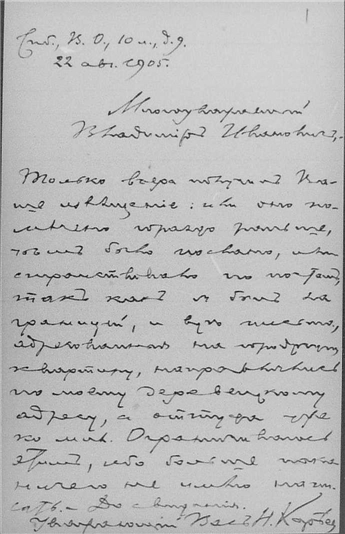 1
Спб., В. О., 10 л., д. 9.
22 авг. 1905.
Многоуважаемый
Владимиръ Ивановичъ,
Только вчера получилъ Ва-
ше извѣщение: или оно по-
мѣчено гораздо раньше,
чѣмъ было послано, или
странствовало по почтѣ,
такъ какъ я былъ за
границей, и
адресованная на городскую
квартиру, направлялись
по моему деревенскому
адресу, а оттуда уже
ко мнѣ. Ограничиваюсь
этимъ, ибо больше пока
ничего не имѣю напи-
сать. – До свидания.
Уважающий Васъ Н.